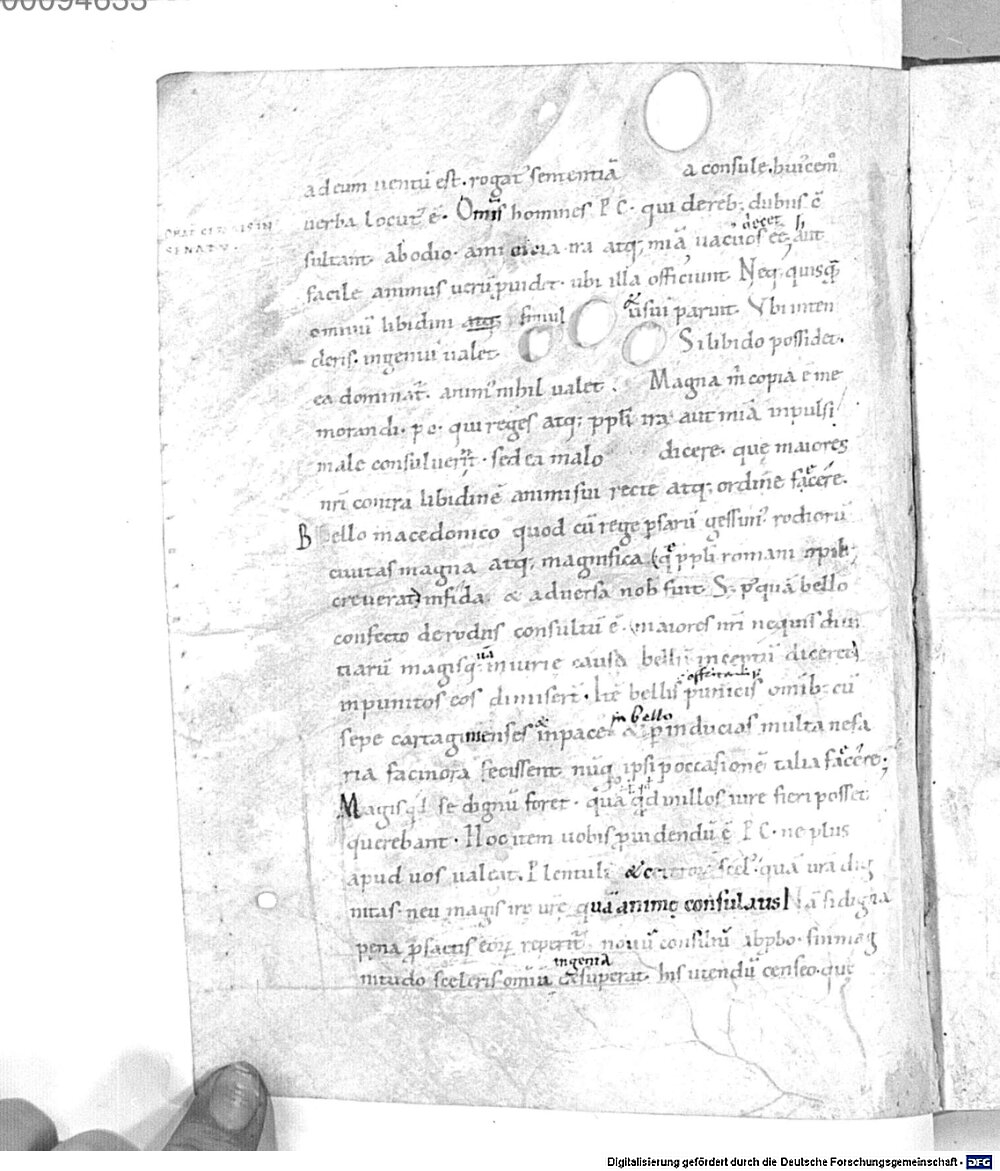 00094635
ad eum uentũ est. rogat᷒ sententiã a consule. huicemoͦ
uerba locut᷒ ẽ. Om̃is homines P C. qui de reb; dubiis cõ
decet
sultant. ab odio. amicicia. ira atq; mĩa uacuos eẽ
ORAT CESARIS IN
SENATV.
facile animus uerũ puidet. ubi illa officiunt. Neq; quisq̃
omniũ libidini atq; simul & usui paruit. Vbi inten
deris. ingeniũ ualet Si libido possidet.
ea dominat᷒. anim᷒ nihil ualet. Magna m̃ copia ẽ me
morandi. p c. qui reges atq; ppłi ira aut mĩa inpulsi
male consuluerĩt. sed ea malo dicere. quę maiores
nr̃i contra libidinẽ animi sui recte atq; ordine facere.
Bello macedonico quod cũ rege psarũ gessim᷒. rodiorũ
ciuitas magna atq; magnifica (q̃ ppłi romani opib;
creuerat) infida. & aduersa nob fuit. S; pquã bello
confecto de rodiis consultũ ẽ. maiores nr̃i nequis diui
tiarũ magisq; iniurię causa bellũ inceptũ diceret
inpunitos eos dimiser̃t. Itẽ bellis punicis omib; cũ
in bello
sepe cartaginienses & in pace & p inducias multa nefa
ria facinora fecissent. nũq̃ ipsi p occasionẽ talia facere;
Magis qd se dignũ foret. quã qd in illos iure fieri posset
querebant. Hoc item uobis puidendũ ẽ P C. ne plus
apud uos ualeat. P lentuli & ceteror̃ scel᷒. quã ur̃a dig
nitas. neu magis irę ur̃ę quã animę consulatis! Nã si digna
pęna p factis eor̃ reperit᷒. nouũ consiliũ abpbo. sin mag
ingenia
nitudo sceleris omiũ exsuperat. his utendũ censeo. quę
Digitalisierung gefördert durch die Deutsche Forschungsgemeinschaft - DFG